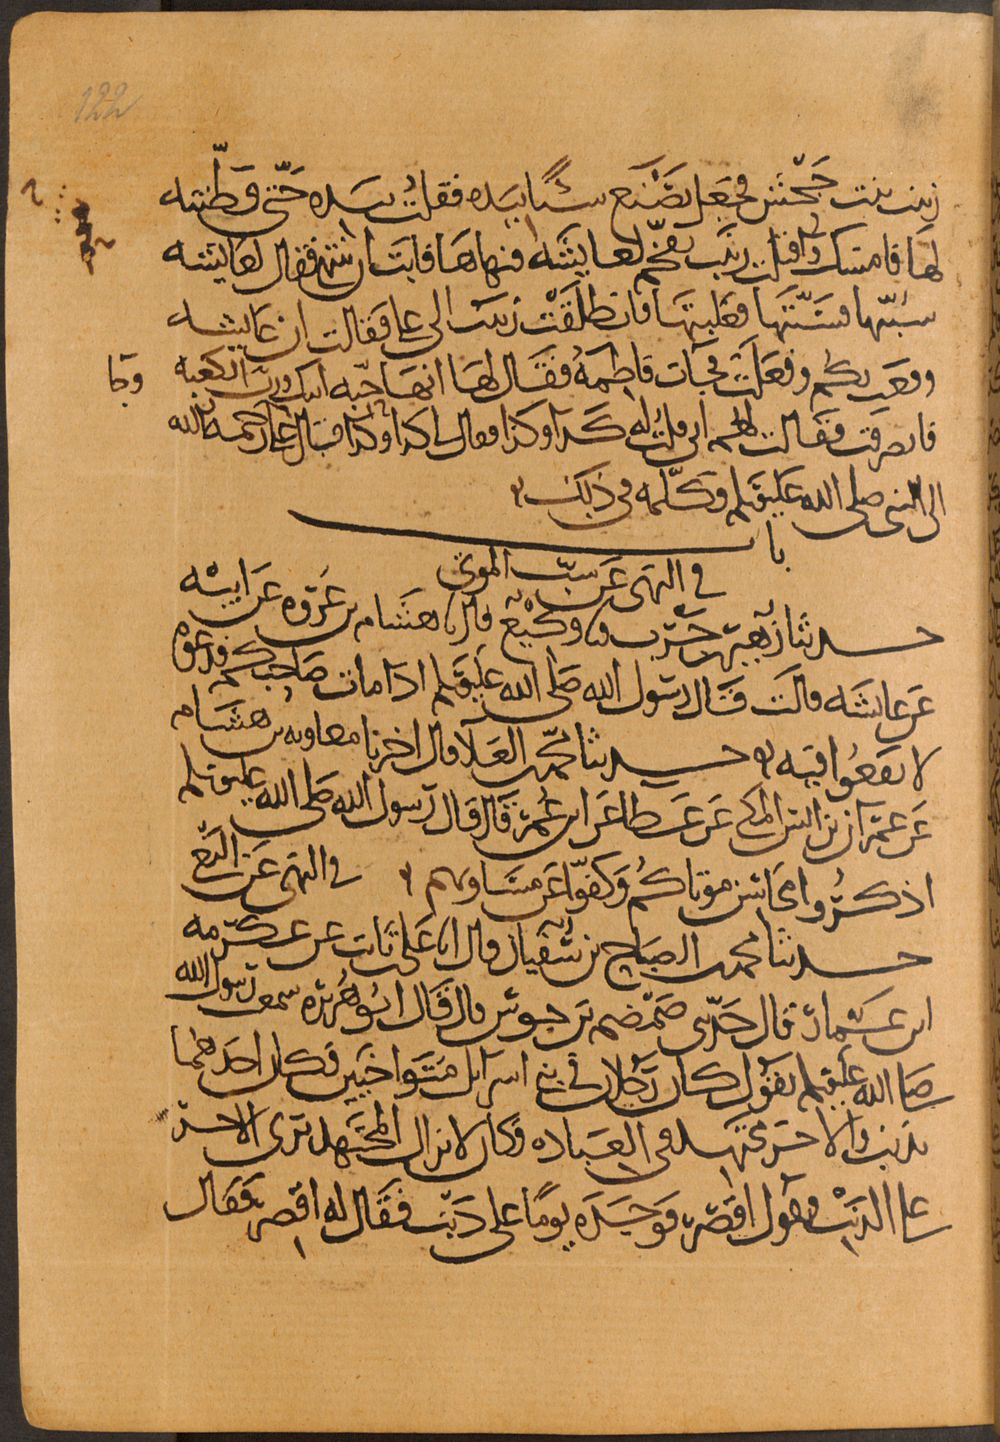 122
زينب بنت جحش فجعل يصنع شيا بيده فقلت بيده حتى فطنته
لها فامسك واقبلت زينب تقحم لعايشه فنهاها فابت ان تنتهي فقال لعايشه
سبيها فسبتها فغلبتها فانطلقت زينب الى علي فقالت ان عايشه
وقعت بكم وفعلت فجات فاطمة فقال لها انها حبه ابيك ورب الكعبه
وجا
فانصرفت فقالت لهم اني قلت له كذا وكذا فقال لي كذا وكذا قال علي رحمه الله
الى النبي صلى الله عليه وسلم وكلمه في ذلك
باب
في النهي عن سب الموتى
حدثنا زهير بن حرب نا وكيع قال نا هشام بن عروه عن ابيه
عن عايشه قالت قال رسول الله صلى الله عليه وسلم اذا مات صاحبكم فدعوه
لا تقعوا فيه حدثنا محمد بن العلا قال اخبرنا معاويه بن هشام
عن عمران بن انس المكي عن عطا عن ابن عمر قال قال رسول الله صلى الله عليه وسلم
اذكروا محاسن موتاكم وكفوا عن مساويهم في النهي عن البغي
حدثنا محمد بن الصباح بن سفيان قال انا علي بن ثابت عن عكرمه
ابن عمار قال حدثني ضمضم بن جوس قال قال ابو هريره سمعت رسول الله
صلى الله عليه وسلم يقول كان رجلان في بني اسرايل متواخيين فكان احدهما
يذنب والاخر مجتهد في العباده وكان لا يزال المجتهد يرى الاخر
على الذنب فيقول اقصر فوجده يوما على ذنب فقال له اقصر فقال